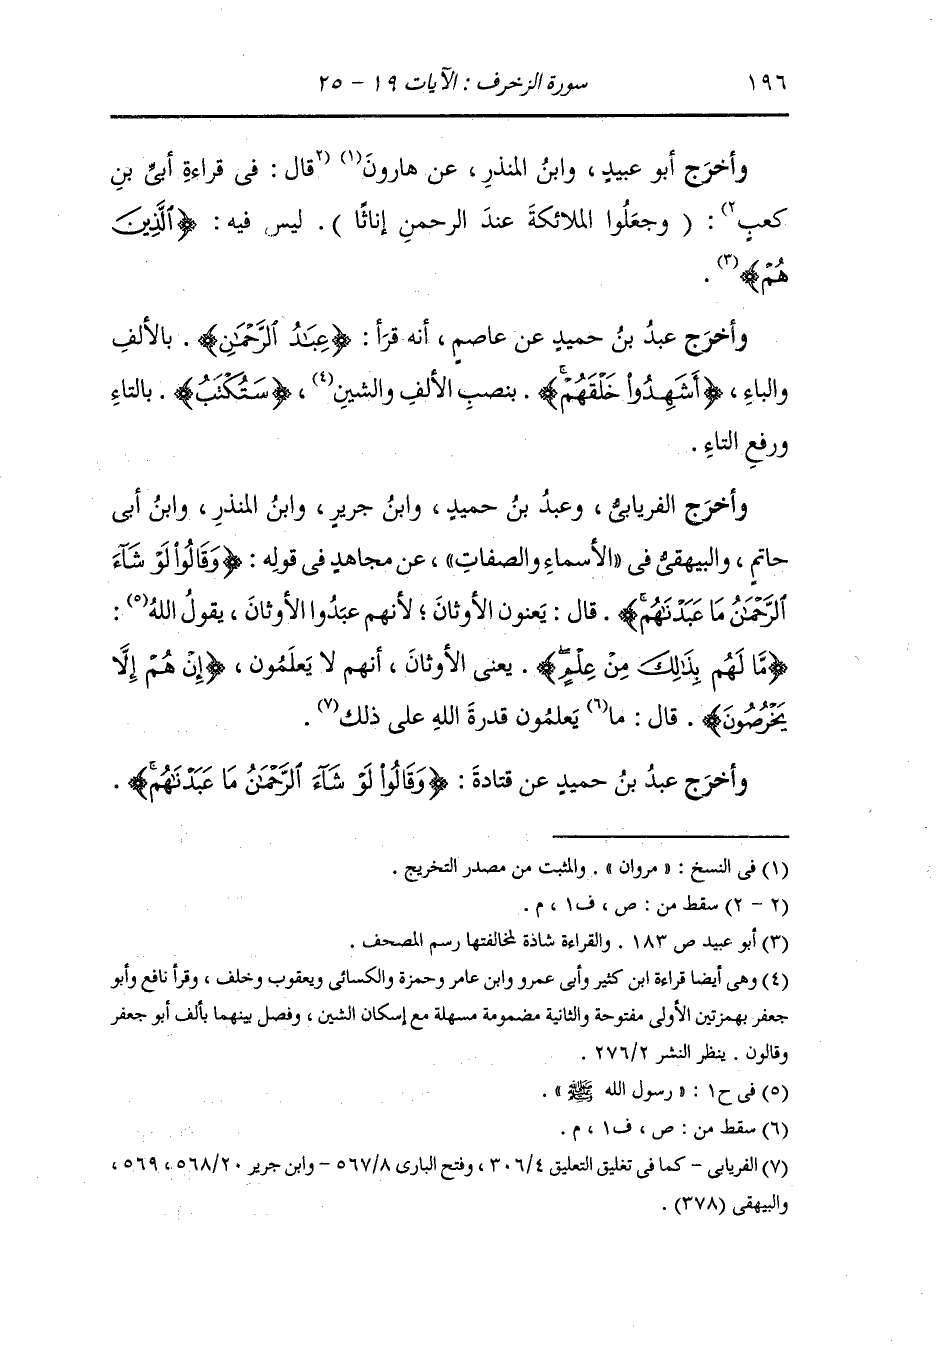 ١٩٦ سورة الزخرف : الآيات ١٩ - ٢٥
وأخرَج أبو عبيدٍ ، وابنُ المنذرِ ، عن هارونَ(١) (٢قال : فى قراءةِ أبىِّ بنِ
كعبٍ٢) : ( وجعَلُوا الملائكةَ عندَ الرحمنِ إناثًا ) . ليس فيه : ﴿ٱلَّذِينَ
هُمْ﴾(٣) .
وأخرَج عبدُ بنُ حميدٍ عن عاصمٍ ، أنه قرَأ : ﴿عِبَـٰدُ ٱلرَّحْمَـٰنِ﴾ . بالألفِ
والباءِ ، ﴿أَشَهِدُوا۟ خَلْقَهُمْ ۚ﴾ . بنصبِ الألفِ والشينِ(٤) ، ﴿سَتُكْتَبُ﴾ . بالتاءِ
ورفعِ التاءِ .
وأخرَج الفريابىُّ ، وعبدُ بنُ حميدٍ ، وابنُ جريرٍ ، وابنُ المنذرِ ، وابنُ أبى
حاتمٍ ، والبيهقىُّ فى «الأسماءِ والصفاتِ» ، عن مجاهدٍ فى قولِه : ﴿وَقَالُوا۟ لَوْ شَآءَ
ٱلرَّحْمَـٰنُ مَا عَبَدْنَـٰهُم ۚ﴾ . قال : يَعنون الأوثانَ ؛ لأنهم عبَدُوا الأوثانَ ، يقولُ اللهُ(٥) :
﴿مَّا لَهُم بِذَٰلِكَ مِنْ عِلْمٍ ۖ﴾ . يعنى الأوثانَ ، أنهم لا يَعلَمُون ، ﴿إِنْ هُمْ إِلَّا
يَخْرُصُونَ﴾ . قال : ما(٦) يَعلمُون قدرةَ اللهِ على ذلك(٧) .
وأخرَج عبدُ بنُ حميدٍ عن قتادةَ : ﴿وَقَالُوا۟ لَوْ شَآءَ ٱلرَّحْمَـٰنُ مَا عَبَدْنَـٰهُم ۚ﴾ .
(١) فى النسخ : « مروان » . والمثبت من مصدر التخريج .
(٢ - ٢) سقط من : ص ، ف١ ، م .
(٣) أبو عبيد ص ١٨٣ . والقراءة شاذة لمخالفتها رسم المصحف .
(٤) وهى أيضا قراءة ابن كثير وأبى عمرو وابن عامر وحمزة والكسائى ويعقوب وخلف ، وقرأ نافع وأبو
جعفر بهمزتين الأولى مفتوحة والثانية مضمومة مسهلة مع إسكان الشين ، وفصل بينهما بألف أبو جعفر
وقالون . ينظر النشر ٢/ ٢٧٦ .
(٥) فى ح١ : « رسول الله ﷺ » .
(٦) سقط من : ص ، ف١ ، م .
(٧) الفريابى - كما فى تغليق التعليق ٤/ ٣٠٦ ، وفتح البارى ٨/ ٥٦٧ - وابن جرير ٢٠/ ٥٦٨ ، ٥٦٩ ،
والبيهقى (٣٧٨) .